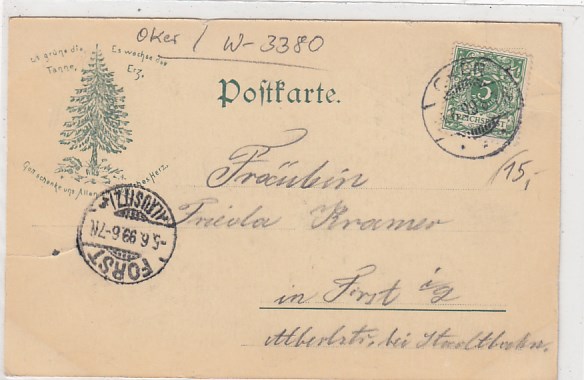 Oker / W-3380
Es grüne die Tanne,
Es wachse das Erz,
Postkarte.
OKER
5
REICHSPOST
15,-
Gott schenke uns Allen
Fräulein
Frieda Kramer
(LAUSITZ)
-5.6.99.6-7N.
FORST
in Forst i/L
Albertstr. bei Stadtbahn.